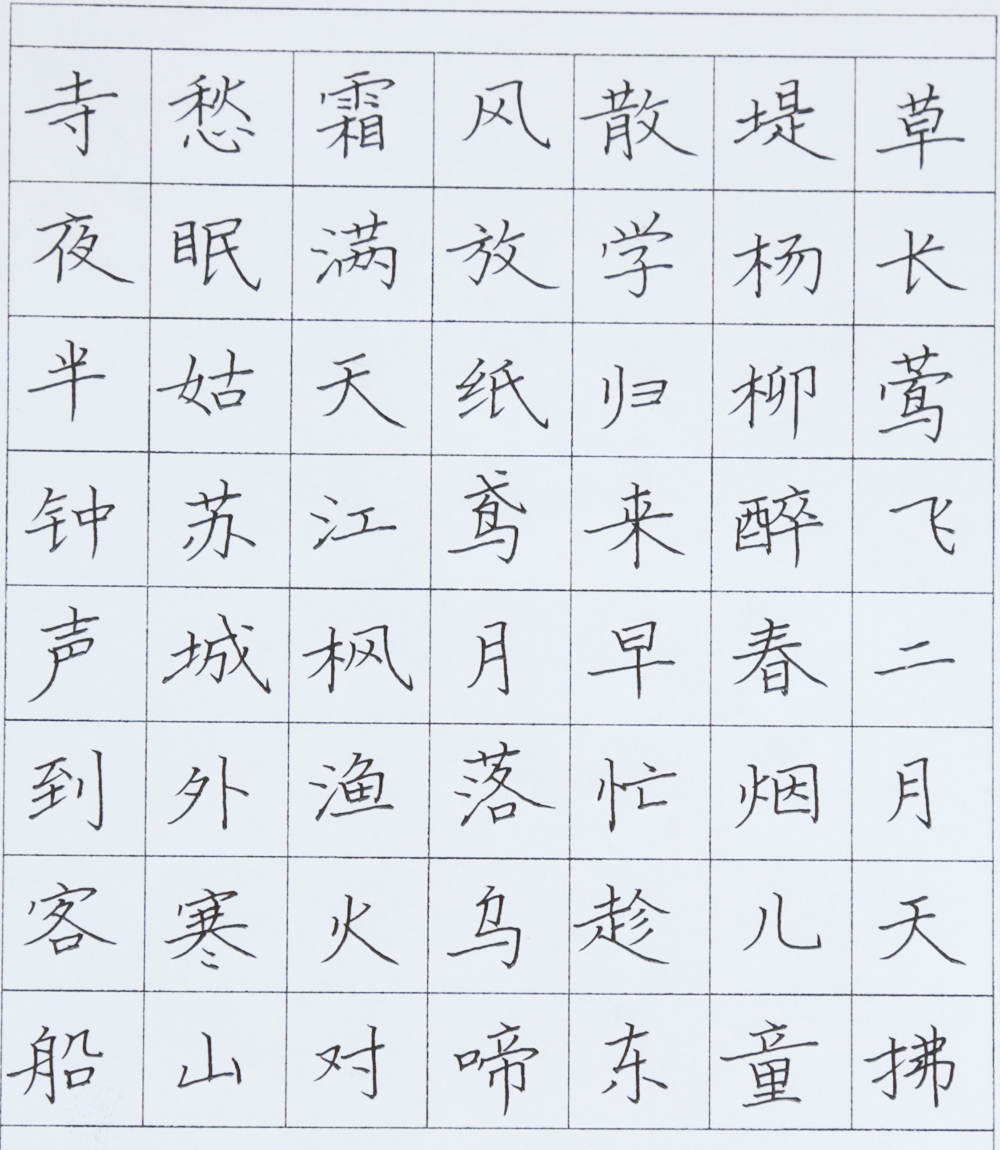 草长莺飞二月天拂
堤杨柳醉春烟儿童
散学归来早忙趁东
风放纸鸢月落乌啼
霜满天江枫渔火对
愁眠姑苏城外寒山
寺夜半钟声到客船